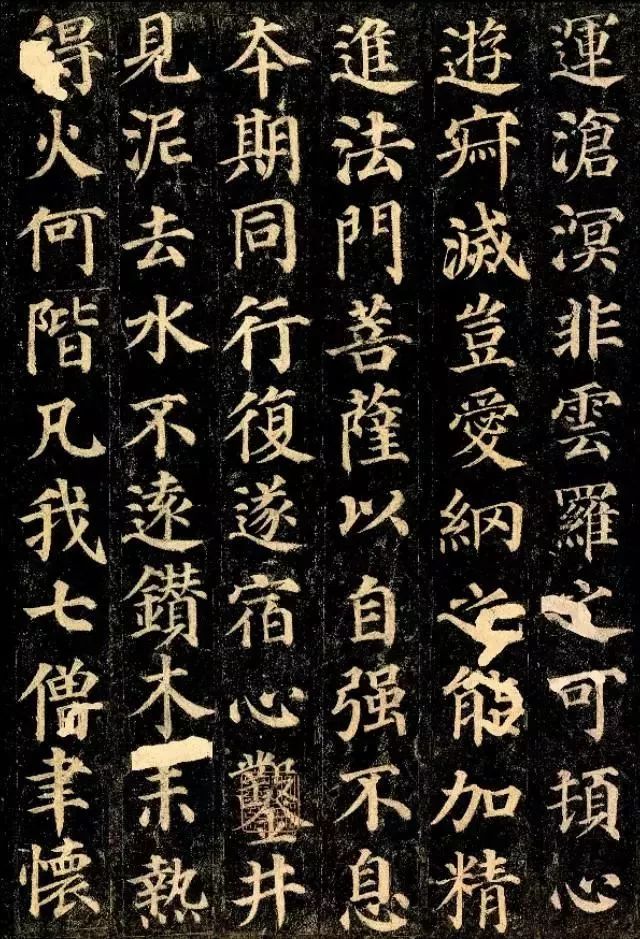 運滄溟非雲羅之可頂心
遊寂滅豈愛網之能加精
進法門菩薩以自强不息
本期同行復遂宿心鑿井
見泥去水不遠鑽木未熱
得火何階凡我七僧聿懷